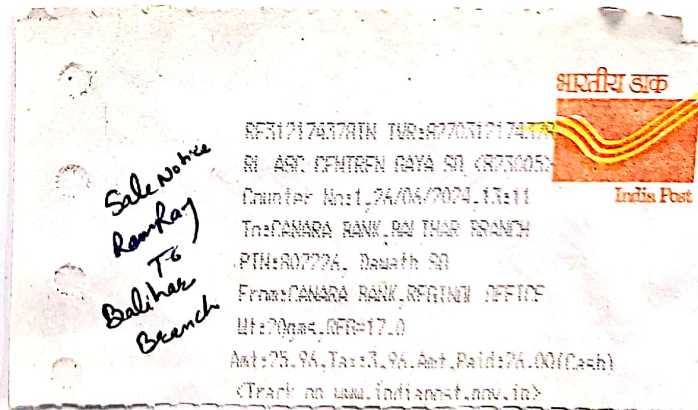 भारतीय डाक
India Post
RF312174378IN IVR:8770312174378
RL ASC CENTREN GAYA SO <823005>
Counter No:1,26/06/2024,13:11
To:CANARA BANK,BALIHAR BRANCH
PIN:802226, Dawath SO
From:CANARA BANK,REGINOL OFFICE
Wt:20gms,REG=17.0
Amt:25.96,Tax:3.96,Amt.Paid:26.00(Cash)
<Track on www.indiapost.gov.in>
Sale Notice
RamRay
To
Balihar
Branch